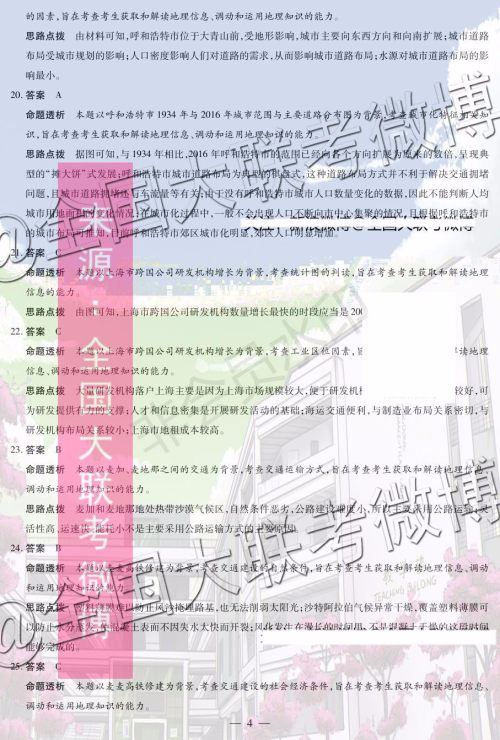 的因素，旨在考查考生获取和解读地理信息、调动和运用地理知识的能力。
思路点拨 由材料可知，呼和浩特市位于大青山前，受地形影响，城市主要向东西方向和向南扩展；城市道路
布局受城市规划的影响；人口密度影响人们对道路的需求，从而影响城市道路布局；水源对城市道路布局的影
响最小。
20. 答案 A
命题透析 本题以呼和浩特市 1934 年与 2016 年城市范围与主要道路分布图为背景，考查城市化特征相关知
识，旨在考查考生获取和解读地理信息、调动和运用地理知识的能力。
思路点拨 据图可知，与 1934 年相比，2016 年呼和浩特市的范围已经向各个方向扩展为原来的数倍，呈现典
型的“摊大饼”式发展；呼和浩特市城市道路布局为典型的棋盘式，这种道路布局方式并不利于解决交通拥堵
问题，且城市道路拥堵还与车流量等有关；由于没有呼和浩特市城市人口数量变化的数据，因此不能判断人均
城市用地面积的变化情况；在城市化过程中，一般不会出现人口不断向市中心集聚的情况，且根据呼和浩特市
的城市布局可推知，目前呼和浩特市郊区城市化明显，郊区人口明显增加。
21. 答案 C
命题透析 本题以上海市跨国公司研发机构增长为背景，考查统计图的判读，旨在考查考生获取和解读地理
信息的能力。
思路点拨 由图可知，上海市跨国公司研发机构数量增长最快的时段应当是 200
22. 答案 C
命题透析 本题以上海市跨国公司研发机构增长为背景，考查工业区位因素，旨 读地理
信息、调动和运用地理知识的能力。
思路点拨 大量研发机构落户上海主要是因为上海市场规模较大，便于研发机构 较好，可
为研发提供有力的支撑；人才和信息密集是开展研发活动的基础；海运交通便利，与制造业布局关系密切，与
研发机构布局关系较小；上海市地租成本较高。
23. 答案 B
命题透析 本题以麦加、麦地那之间的交通为背景，考查交通运输方式，旨在考查考生获取和解读地理信息、
调动和运用地理知识的能力。
思路点拨 麦加和麦地那地处热带沙漠气候区，自然条件恶劣，公路建设难度小，所以主要采用公路运输；灵
活性高、运速快、能耗小不是主要采用公路运输方式的主要原因。
24. 答案 B
命题透析 本题以麦麦高铁修建为背景，考查交通建设的自然条件，旨在考查考生获取和解读地理信息、调动
和运用地理知识的能力。
思路点拨 塑料薄膜难以防止风沙掩埋路基，也无法削弱太阳光；沙特阿拉伯气候异常干燥，覆盖塑料薄膜可
以防止水分蒸发，使混凝土表面不因失水太快而开裂；风化发生在漫长的时间里，不是混凝土干燥的这段时间
能够完成的。
25. 答案 C
命题透析 本题以麦麦高铁修建为背景，考查交通建设的社会经济条件，旨在考查考生获取和解读地理信息、
调动和运用地理知识的能力。
— 4 —
@全国大联考微博
@全国大联考微博
来源：全国大联考微博